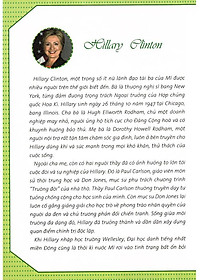 Hillary Clinton
Hillary Clinton, một trong số ít nữ lãnh đạo tài ba của Mĩ được
nhiều người trên thế giới biết đến. Bà là thượng nghị sĩ bang New
York, từng đảm đương trọng trách Ngoại trưởng của Hợp chủng
quốc Hoa Kì. Hillary sinh ngày 26 tháng 10 năm 1947 tại Chicago,
bang Illinois. Cha bà là Hugh Ellworth Rodham, chủ một doanh
nghiệp may nhỏ, người ủng hộ tích cực cho Đảng Cộng Hoà và có
khuynh hướng bảo thủ. Mẹ bà là Dorothy Howell Rodham, một
người nội trợ rất tận tâm chăm sóc gia đình, luôn động viên cho Hillary
dũng khí và sức mạnh trong mọi khó khăn, thử thách của
cuộc sống.
Ngoài cha mẹ, còn có hai người thầy đã có ảnh hưởng to lớn tới
cuộc đời và sự nghiệp của Hillary. Đó là Paul Carlson, giáo viên môn
Lịch sử trung học và Don Jones, mục sư phụ trách chương trình
"Trường đời" của nhà thờ. Thầy Paul Carlson thường truyền dạy tư
tưởng chống cộng cho học sinh của mình. Còn mục sư Don Jones lại
luôn cố gắng giảng giải cho học trò về phong trào nhân quyền của
người da đen và chủ trương phản đối chiến tranh. Sống giữa môi
trường đa dạng đó, Hillary đã trưởng thành và dần dần xây dựng
quan điểm chính trị độc lập.
Khi Hillary nhập học trường Wellesley, Đại học danh tiếng nhất
miền Đông cũng là thời kì nước Mĩ rơi vào tình trạng bất ổn bởi